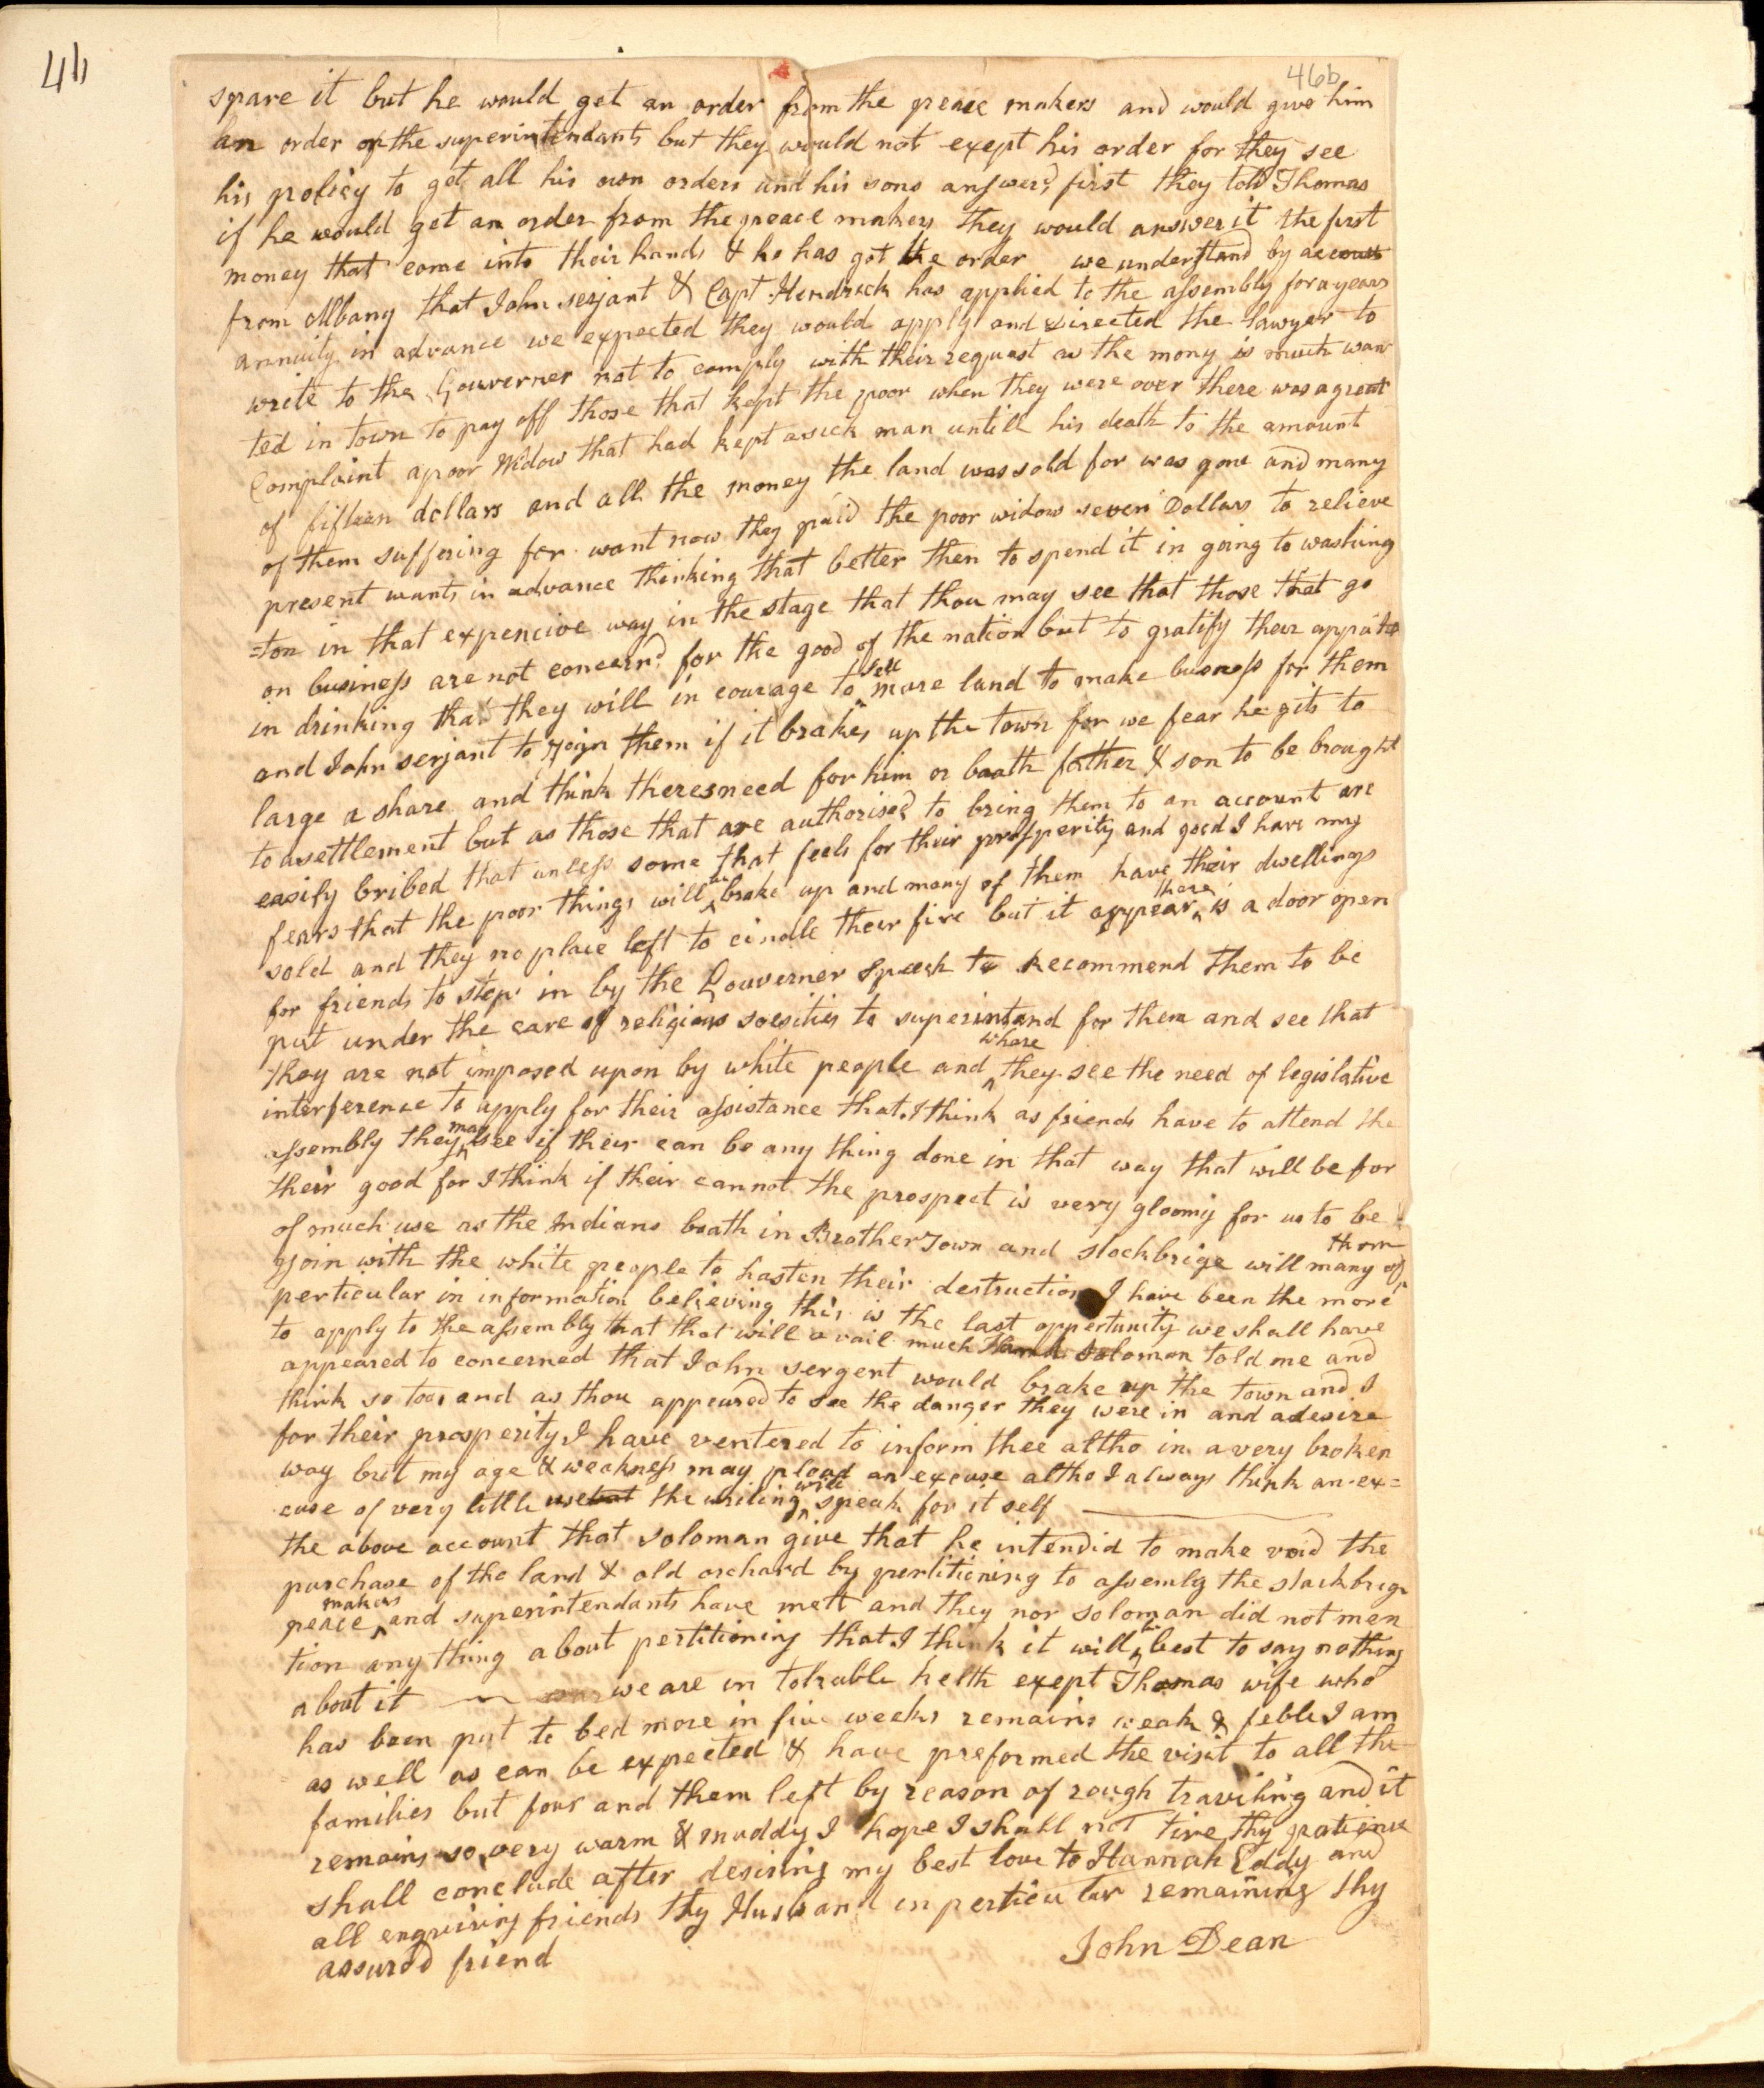 46
46b
spare it but he would get an order from the peace makers and would give him
an order on the superintendants but they would not exept his order for they see
his policy to get all his own orders and his sons answerd first they told Thomas
if he would get an order from the peace makers they would answer it the first
money that come into their hands & he has got the order we understand by account
from Albany that John serjant & Capt Hendrick has applied to the assembly for a years
annuity in advance we expected they would apply and directed the lawyer to
write to the Gouverner not to comply with their request as the mony is much wan
ted in town to pay off those that kept the poor when they were over there was a great
Complaint a poor Widow that had kept a sick man untill his death to the amount
of fifteen dollars and all the money the land was sold for was gone and many
of them suffering for want now they paid the poor widow seven Dollars to relieve
present wants in advance thinking that better then to spend it in going to washing
=ton in that expencive way in the stage that thou may see that those that go
on business are not concernd for the good of the nation but to gratify their appatite
in drinking that they will in courage to sell more land to make busness for them
and John serjant to join them if it brakes up the town for we fear he gits to
large a share and think theres need for him or boath father & son to be brought
to a settlement but as those that are authorised to bring them to an account are
easily bribed that unless some that feels for their prosperity and good I have my
fears that the poor things will be broke up and many of them have their dwellings
sold and they no place left to cindle their fire but it appear there is a door open
for friends to step in by the Gouverner speech to recommend them to be
put under the care of religious soesities to superintand for them and see that
they are not imposed upon by white people and whare they see the need of legislative
interference to apply for their assistance that I think as friends have to attend the
assembly they may see if their can be any thing done in that way that will be for
their good for I think if their cannot the prospect is very gloomy for us to be
of much use as the Indians boath in BrotherTown and stockbrige will many of them
join with the white people to hasten their destruction I have been the more
perticular in information believing this is the last oppertunity we shall have
to apply to the assembly that that will avail much Solomon told me and
appeared to concerned that John sergent would brake up the town and I
think so too and as thou appeared to see the danger they were in and a desire
for their prosperity I have ventered to inform thee altho in a very broken
way but my age & weakness may plead an excuse altho I always think an ex=
cuse of very little use but the writing will speak for it self
the above account that soloman give that he intendid to make void the
purchase of the land & old orchard by pertitioning to assemly the stackbrige
peace makers and superintendants have mett and they nor soloman did not men
tion any thing about pertitioning that I think it will be best to say nothing
about it we are in tolrable helth exept Thomas wife who
has been put to bed more in five weeks remains weak & feble I am
as well as can be expected & have preformed the visit to all the
families but four and them left by reason of rough traviling and it
remains so very warm & muddy I hope I shall not tire thy patience
shall conclude after desiring my best love to Hannah Eddy and
all enquiring friends thy Husband in perticular remaining thy
assured friend
John Dean